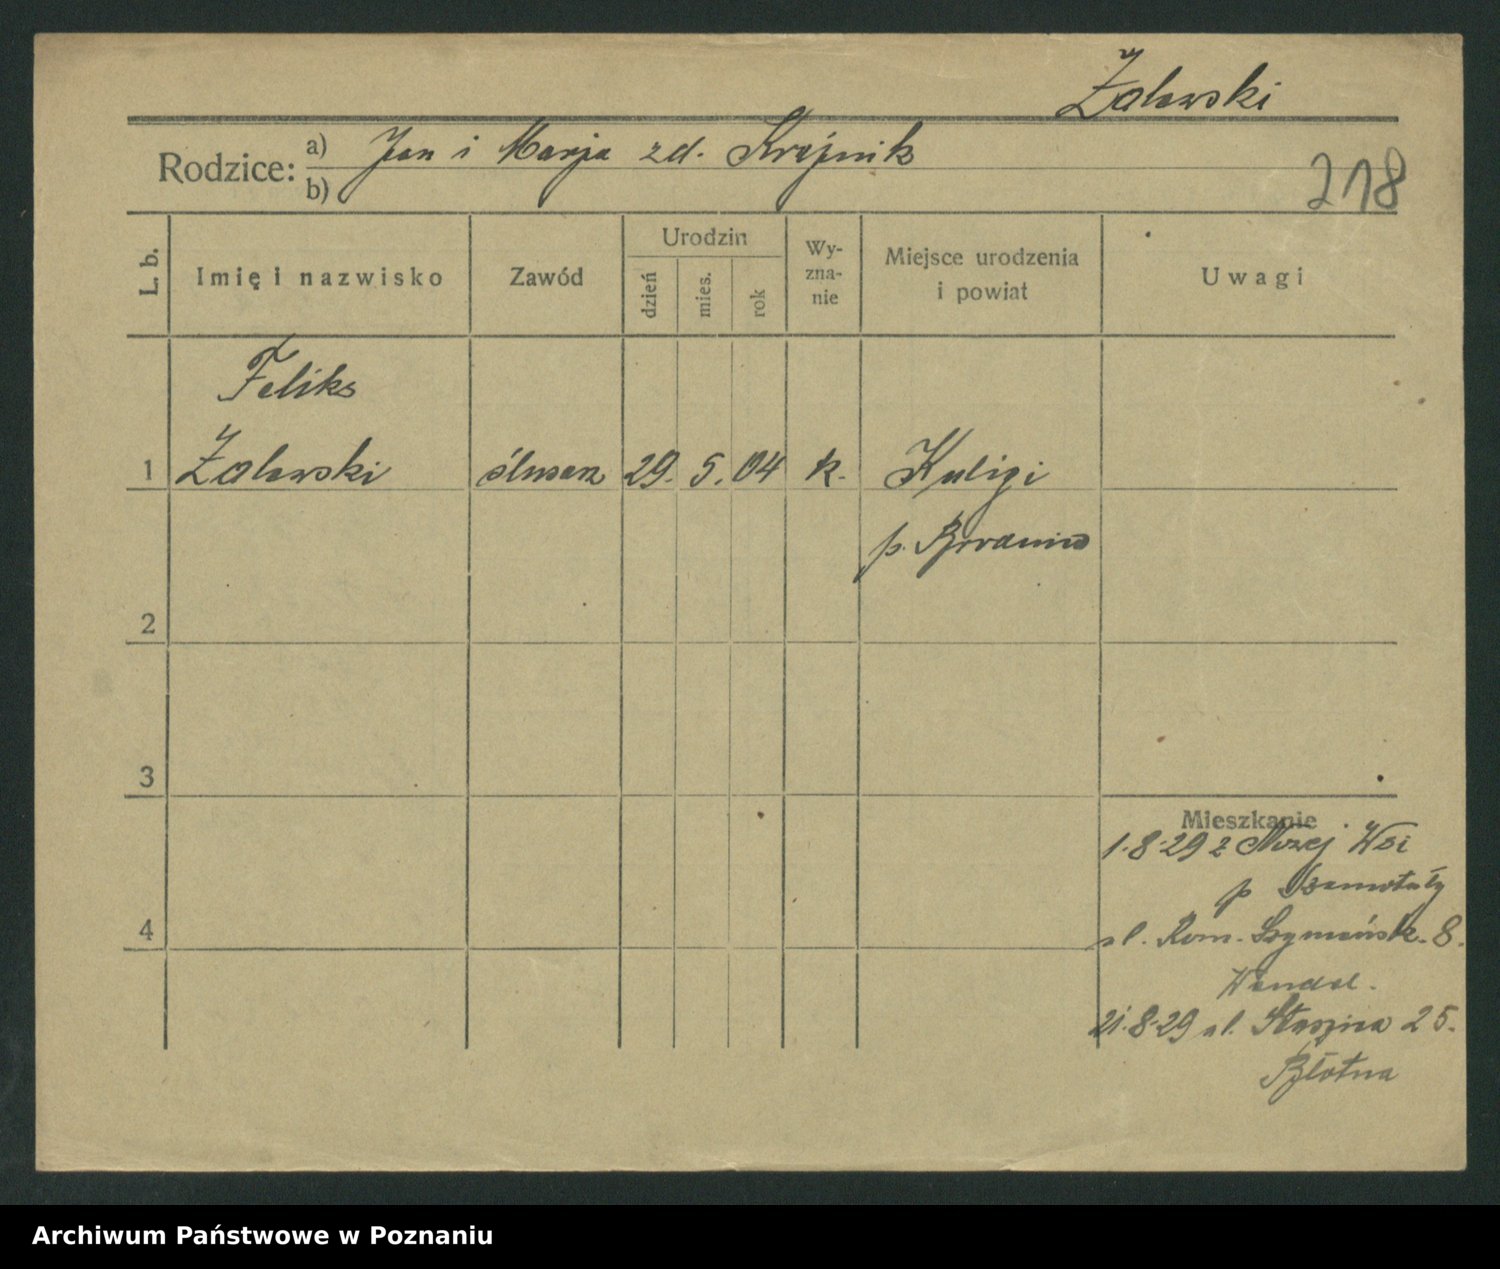 Żalewski
Rodzice: a) Jan i Marja zd. Krajnik
b)
218
L. b.
Imię i nazwisko
Zawód
Urodzin
dzień
mies.
rok
Wy-
zna-
nie
Miejsce urodzenia
i powiat
Uwagi
Feliks
1 Żalewski ślusarz 29. 5. 04 k. Kuligi
p.
2
3
Mieszkanie
1.8.29 z Nowej Wsi
p Szamotuły
ul. Rom. Szymańsk. 8.
4
21.8.29 ul. Staszica 25.
Błotna
Archiwum Państwowe w Poznaniu